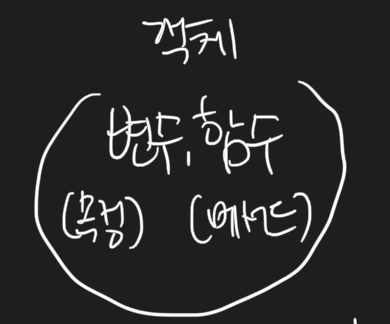 객체
변수, 함수
(속성) (메서드)